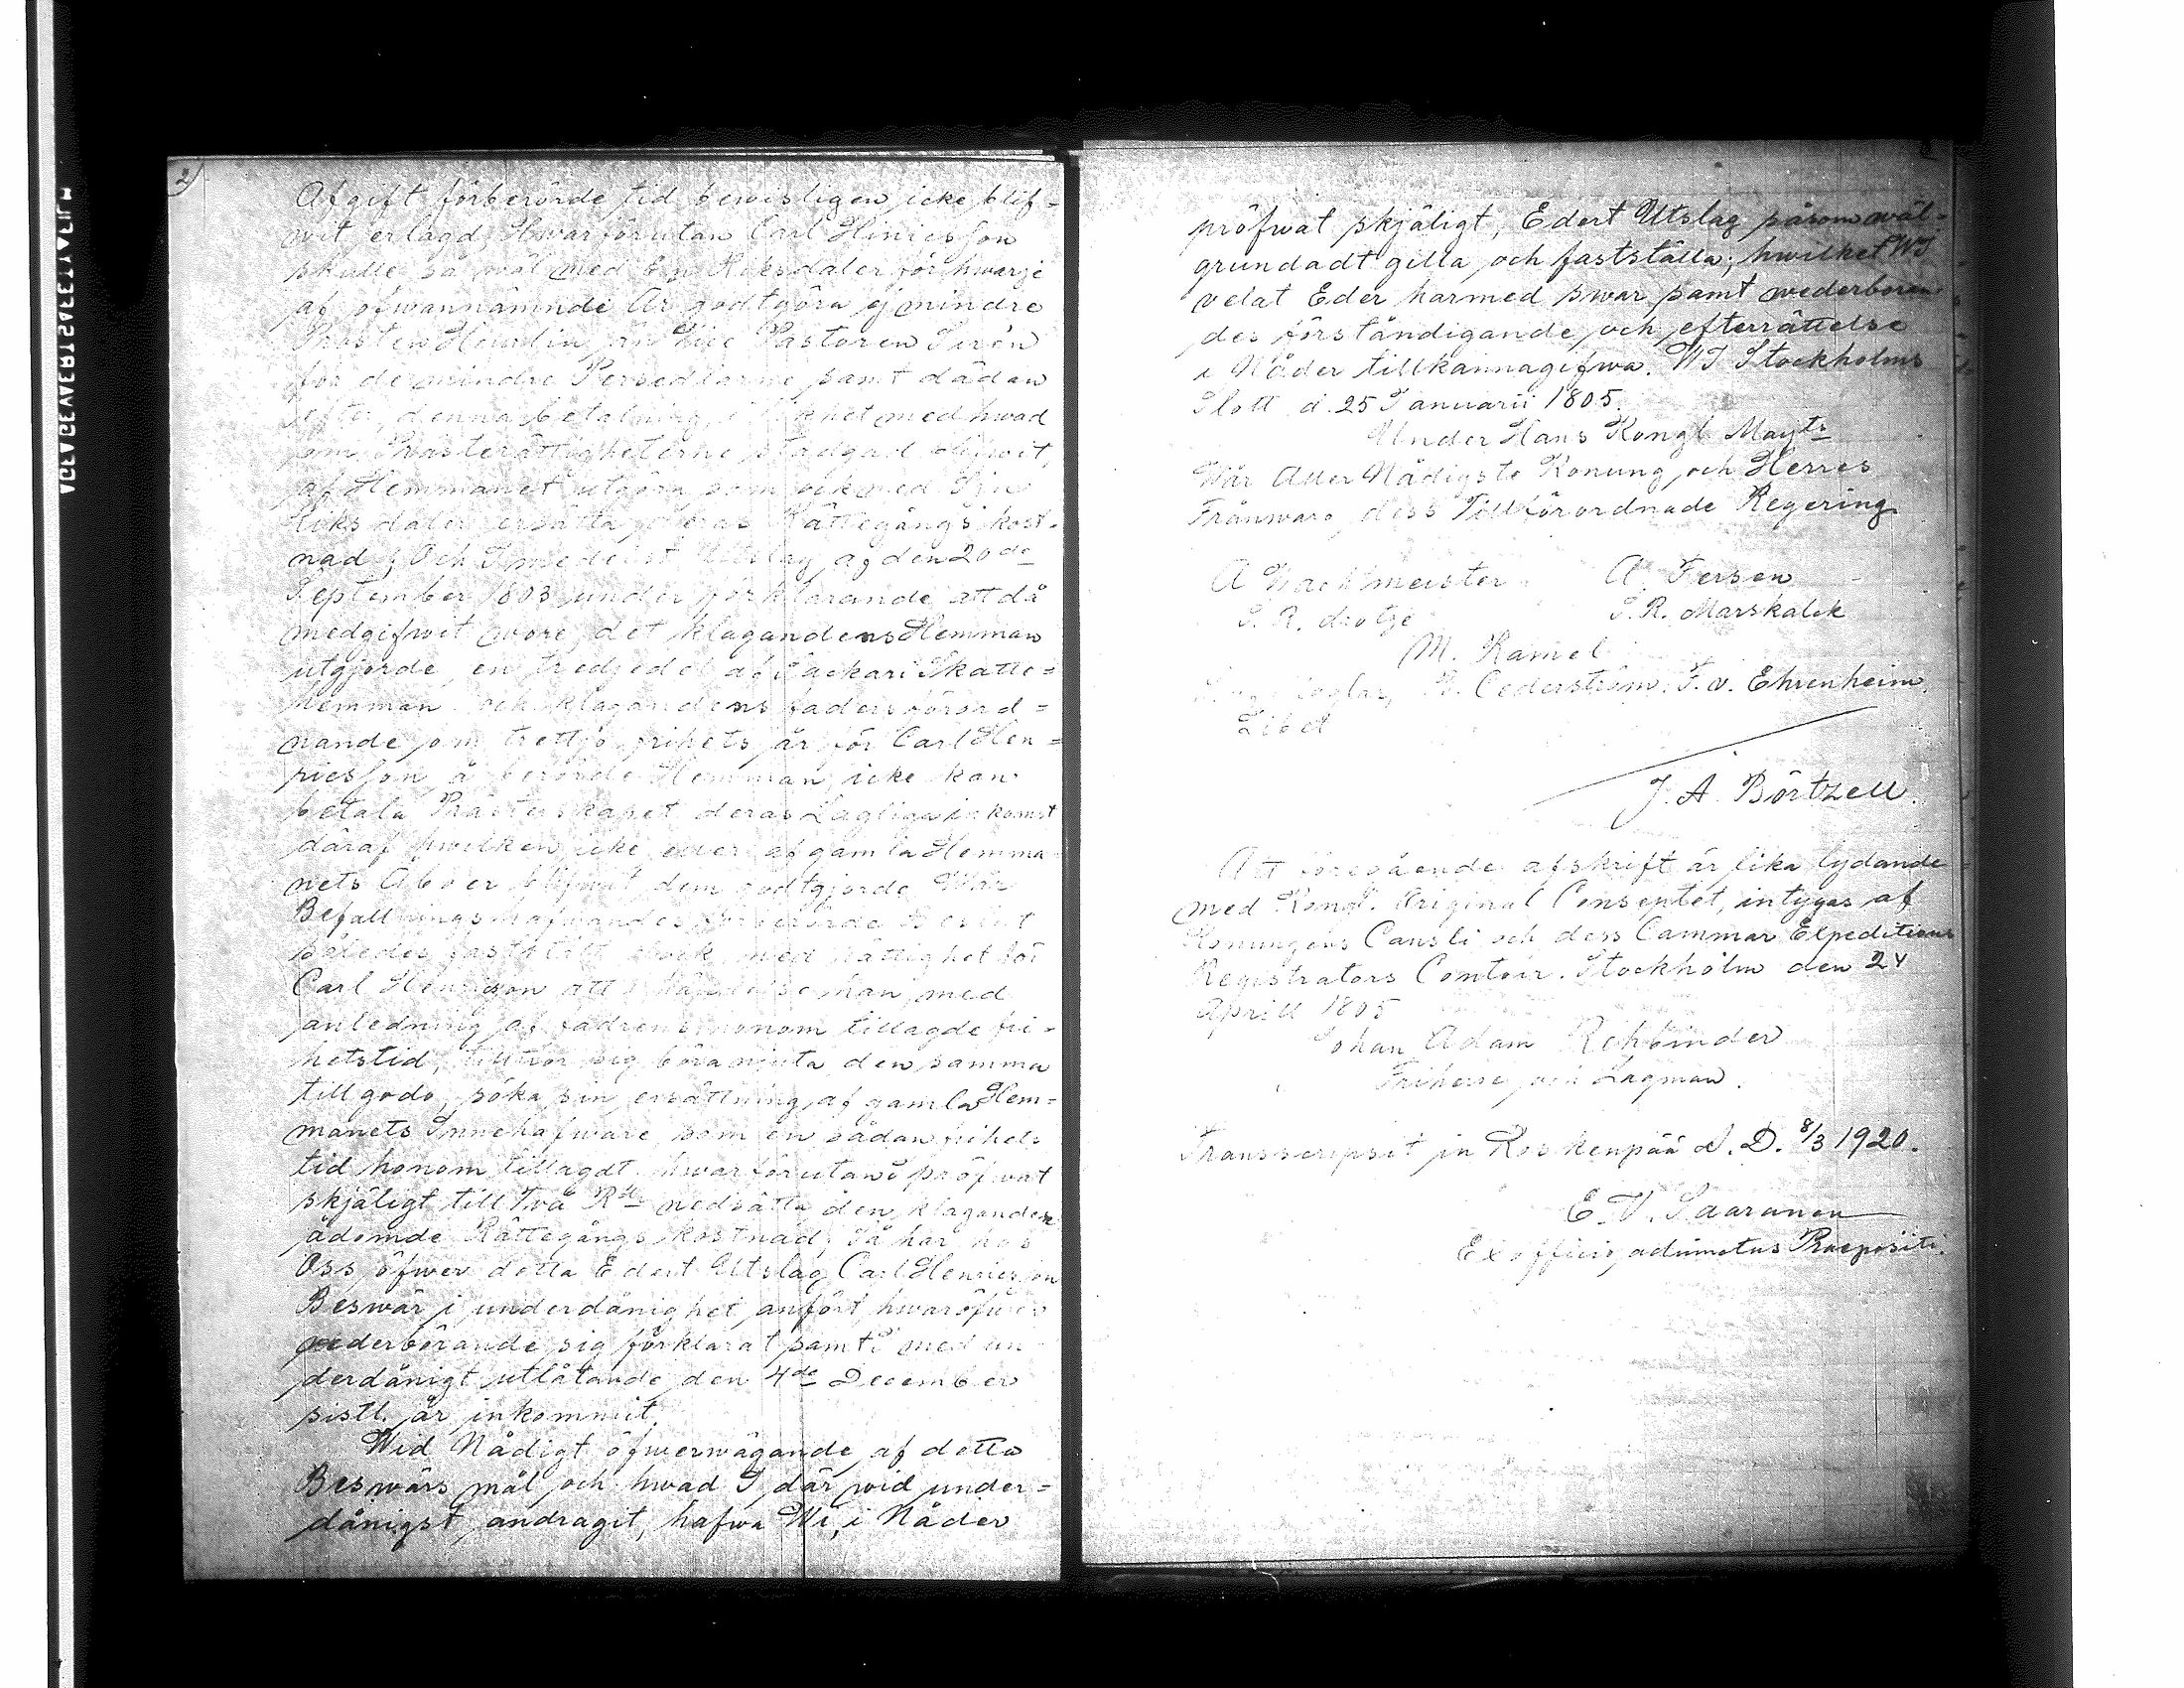 2)
Afgift förberörde tid bevisligen icke blif=
wit erlagd; Hwarförutan Carl Hinricsson
skulle så wäl med En Riksdaler för hwarje
af ofwannämnde År godtgöra ej mindre
Prosten Heurlin, än Vice Pastoren Sirén
för de mindre Persedlarne samt dädan
efter, denna betalning, i likhet med hwad
om Prästerättigheterne stadgad blifwit,
af Hemmanet utgöra, som ock med Sju
Riksdaler ersätta deras Rättegångs kost=
nad; Och I medelst Utslag af den 20de
September 1803 under förklarande att då
medgifwit wore, det klagandens Hemman
utgjorde en tredjedel af Jackari Skatte=
hemman och klagandens faders förord=
nande om trettjo frihets år för Carl Hen=
ricsson å berörde Hemman icke kan
betala Prästerskapet deras Lagliga inkomst
däraf hwilken icke eller af gamla Hemma=
nets Åboer blifwit dem godtgjorde Wår
Befallningshafwandes förberörde Beslut
således fastställt ock med rättighet för
Carl Henricsson att i händelse han med
anledning af fadren honom tillagde fri=
hetstid, tilltror sig böra njuta den samma
till godo, söka sin ersättning af gamla Hem=
manets Innehafware som en sådan frihets
tid honom tillagdt hwarförutan I pröfwat
skjäligt till Två Rdr nedsätta den klaganden
ådömde Rättegångs kostnad; Så har hos
Oss öfwer detta Edert Utslag Carl Henricsson
Beswär i underdånighet anfört hwaröfwer
wederbörande sig förklarat samt I med un=
derdånigt utlåtande den 4de December
sistl. år inkommit.
Wid Nådigt öfwerwägande af detta
Beswärs mål och hwad I där wid under=
dånigst andragit, hafwa Wi, i Nåder
pröfwat skjäligt, Edert Utslag såsom wäl=
grundadt gilla och fastställa; hwilket WI
velat Eder härmed swar samt wederböran=
des förständigande och efterrättelse
i Nåder tillkännagifwa. WI Stockholms
Slott d. 25 Januarii 1805.
Under Hans Kongl. Mayts
Wår Aller Nådigste Konung och Herres
Frånwaro, dess Tillförordnade Regering
A Wachtmeister A. Fersen
S. R. drotze S. R. Marskalck
M. Ramel
Zibet R. Cederström. F. v. Ehrenheim.
J. A. Börtzell.
Att föregående afskrift är lika lydande
med Kongl. Original Conseptet, intygas af
Konungens Cansli och dess Cammar Expeditions
Registrators Contoir. Stockholm den 24
Aprill 1805
Johan Adam Rehbinder
Friherre och Lagman.
Transscripsit in Koskenpää d. D. 8/3 1920.
E. V. Saarunen
Ex officio, adiunctus Praepositi.